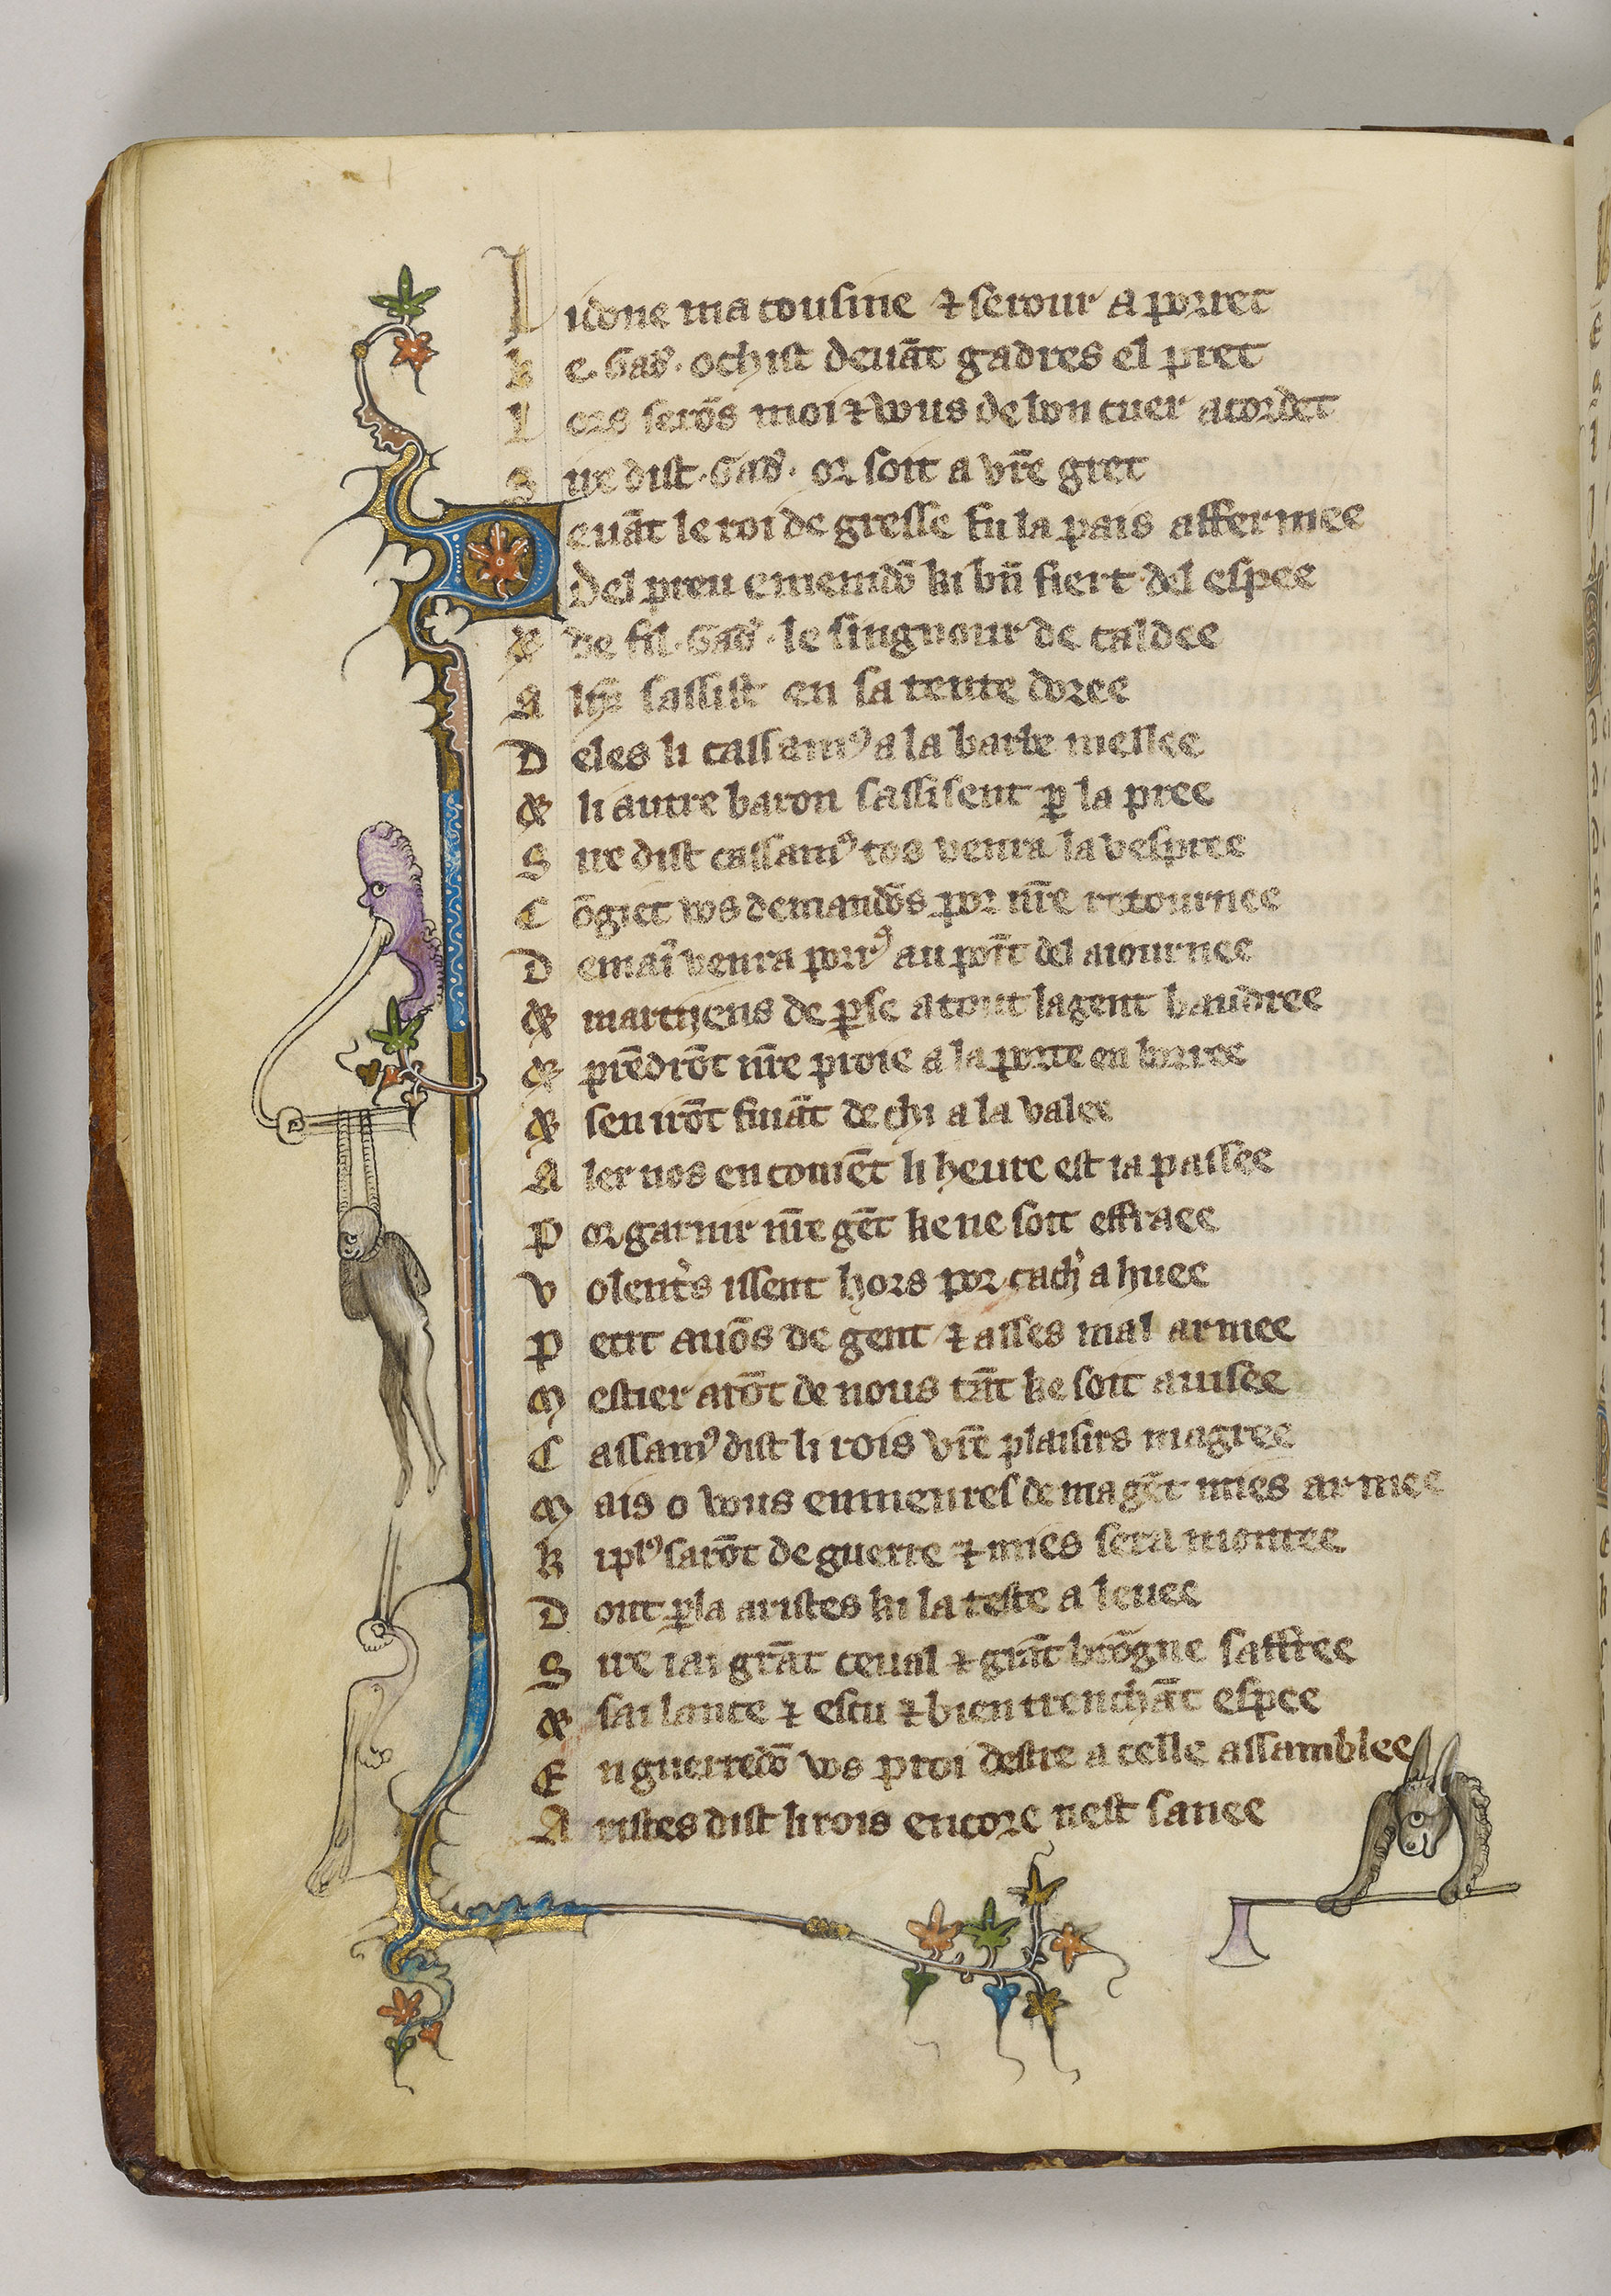 L idone ma cousine ⁊ serour a porret
k e. Gad'. ochist deuāt gadres el pret
L ors serōs moi ⁊ wus de bon cuer acordet
S ire dist. Gad'. or soit a vr̄e gret
D euāt le roi de gresse fu la pais affermee
Del preu emenidō ki bn̄ fiert del espee
& de fil. Gad'. le singnour de caldee
A lix̄ sassist en sa tente doree
D eles li cassam9 a la barbe mellee
& li autre baron sassisent ꝑ la pree
S ire dist cassam9 tos venra la vespree
C ōgiet wos demandōs por nr̄e retournee
D emaī venra porr9 au poīt del aiournee
& martijens de ꝑse a tout la gent baudree
& prēdrōt nr̄e proie a la porte en borree
& sen irōt fuiāt de chi a la valee
A ler nos en couiēt li heure est ia passee
P or garnir nr̄e gēt ke ne soit effraee
V olent's issent hors por cach' a huee
P etit auōs de gent ⁊ asses mal armee
M estier arōt de nous tāt ke soit auisee
C assam9 dist li rois vr̄e plaisirs magree
M ais o vous enmenres de ma gēt mies armee
K i pl9 sarōt de guerre ⁊ mies sera montee
D ont ꝑla aristes ki la teste a leuee
S ire iai grāt ceual ⁊ grāt brōgne saffree
& sai lance ⁊ escu ⁊ bien trenchāt espee
E n guerredō ws proi destre a celle assamblee
A ristes dist li rois encore nest sanee